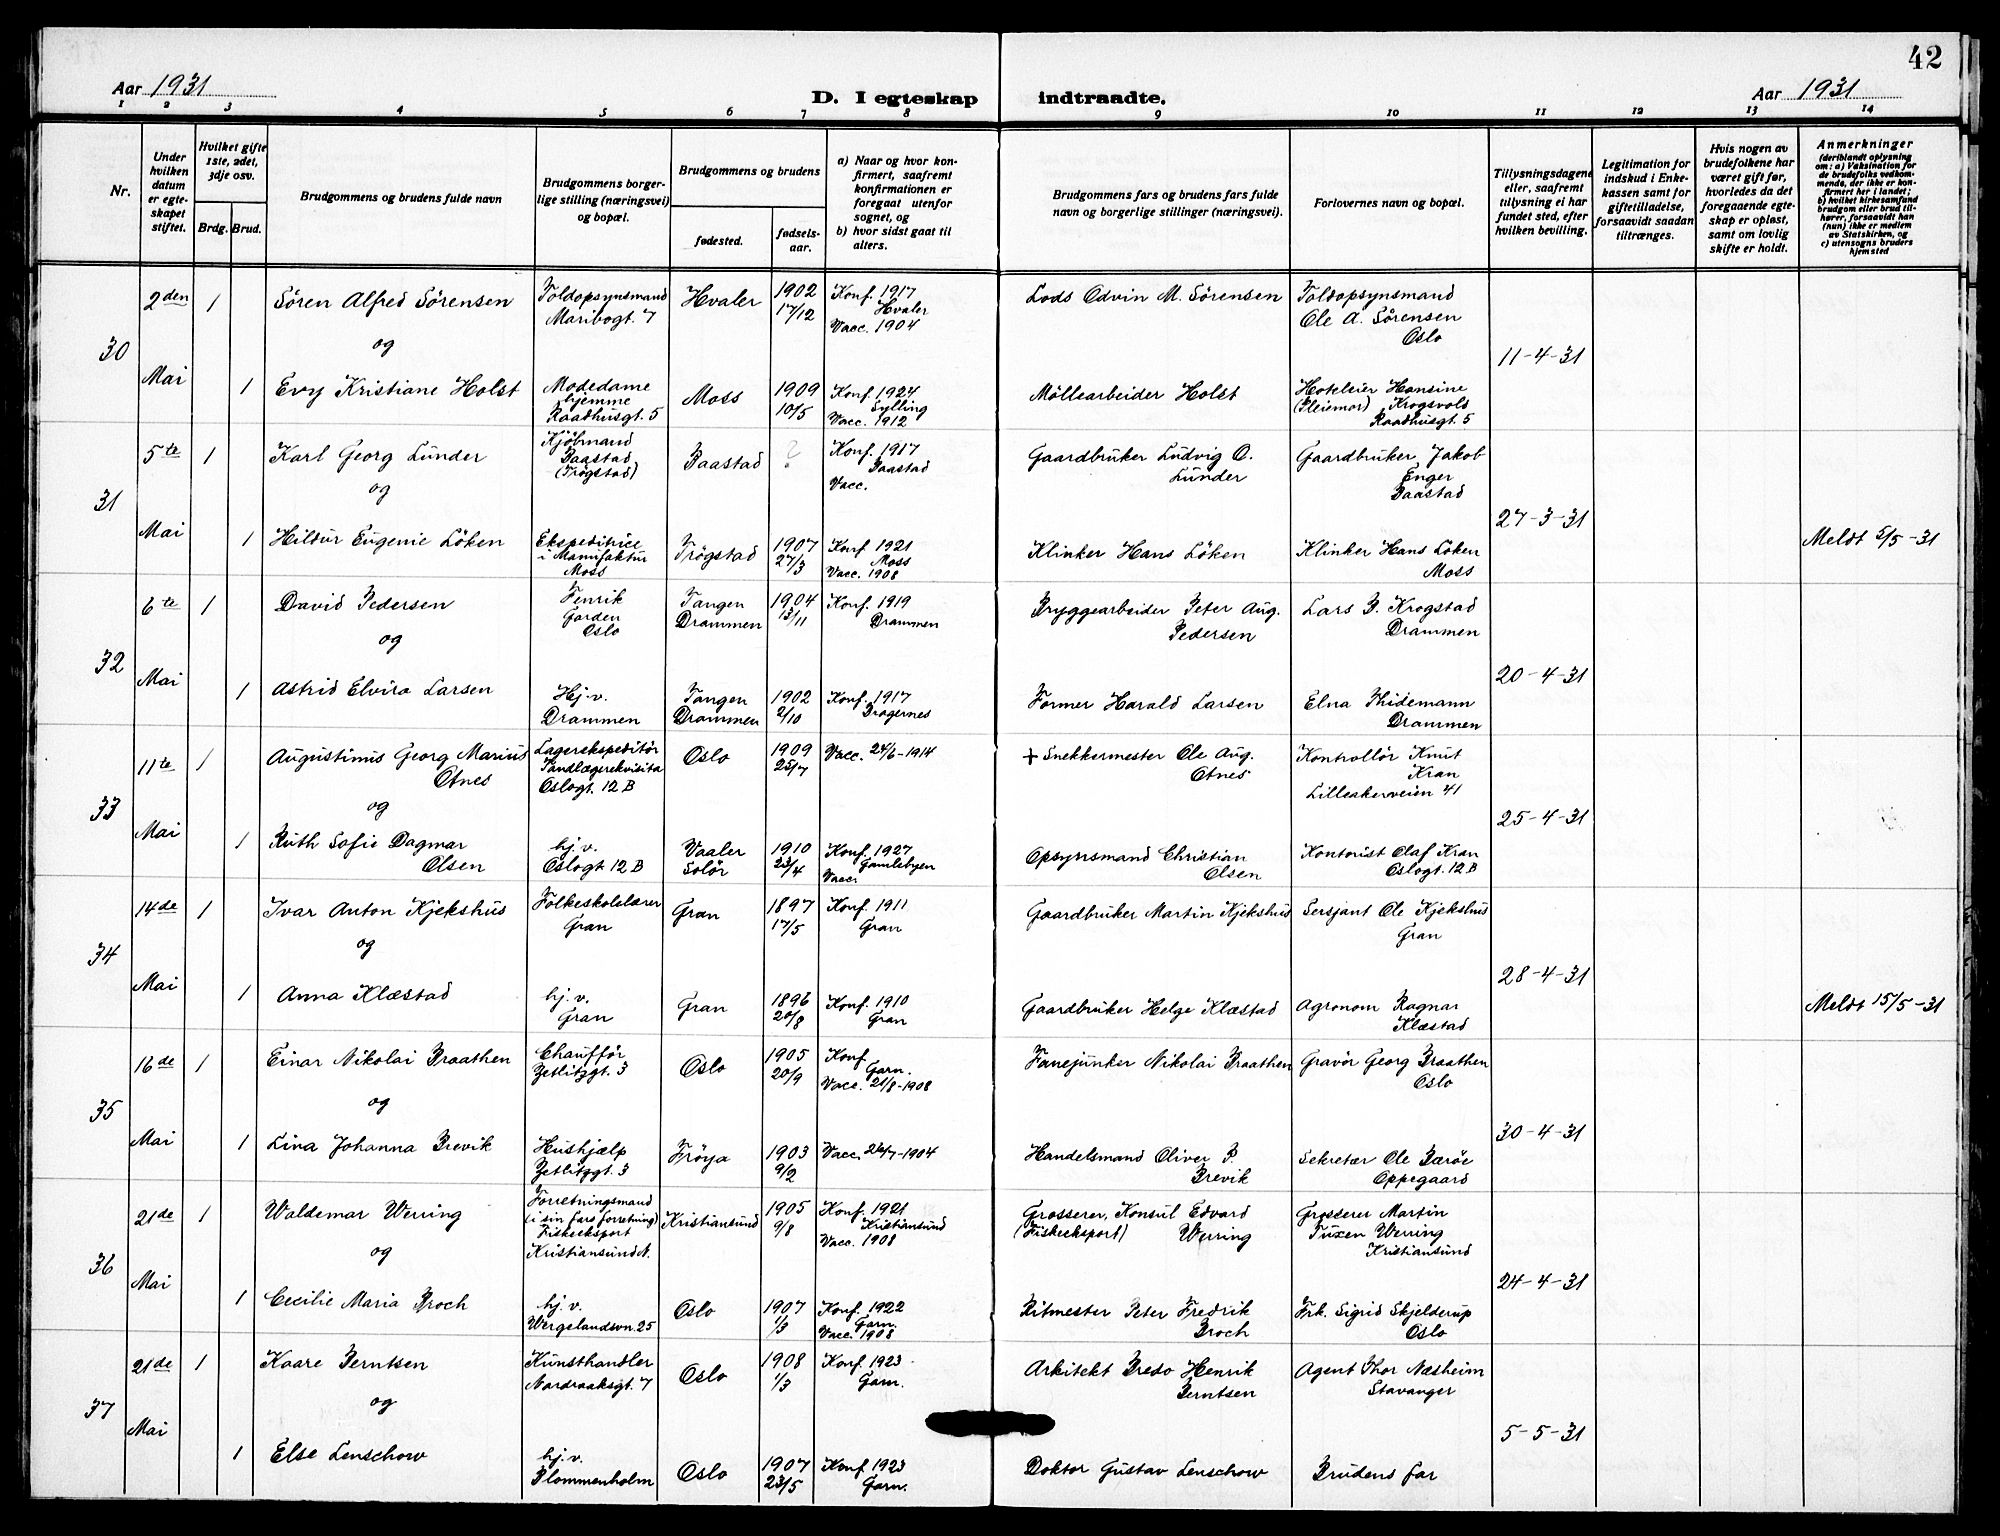 42
Aar 1931
D. I egteskap indtraadte.
Aar 1931
1 2 3 4 5 6 7 8 9 10 11 12 13 14
Nr.
Under hvilken datum er egteskapet stiftet.
Hvilket gifte 1ste, 2det, 3dje osv.
Brdg. Brud.
Brudgommens og brudens fulde navn
Brudgommens borgerlige stilling (næringsvei) og bopæl.
Brudgommens og brudens
fødested.
fødselsaar.
a) Naar og hvor konfirmert, saafremt konfirmationen er foregaat utenfor sognet, og
b) hvor sidst gaat til alters.
Brudgommens fars og brudens fars fulde navn og borgerlige stillinger (næringsvei).
Forlovernes navn og bopæl.
Tillysningsdagene eller, saafremt tillysning ei har fundet sted, efter hvilken bevilling.
Legitimation for indskud i Enkekassen samt for giftetilladelse, forsaavidt saadan tiltrænges.
Hvis nogen av brudefolkene har været gift før, hvorledes da det foregaaende egteskap er opløst, samt om lovlig skifte er holdt.
Anmerkninger
(deriblandt oplysning om: a) Vaksination for de brudefolks vedkommende, der ikke er konfirmert her i landet; b) hvilket kirkesamfund brudgom eller brud tilhører, forsaavidt han (hun) ikke er medlem av Statskirken, og c) utensogns bruders hjemsted
30
2den Mai
1 Søren Alfred Sørensen
Toldopsynsmand
Maribogt. 7
Hvaler
1902
17/12
Konf. 1917
Hvaler
Vacc. 1904
Lods Odvin M. Sørensen
Toldopsynsmand
Ole A. Sørensen
Oslo
og
11-4-31
1 Evy Kristiane Holst
Modedame
hjemme
Raadhusgt. 5
Moss
1909
10/5
Konf. 1924
Sylling
Vacc. 1912
Møllearbeider Holst
Hoteleier Hansine
(Pleiemor) Krogsvold
Raadhusgt. 5
31
5te Mai
1 Karl Georg Lunder
Kjøbmand
Baastad
(Trøgstad)
Baastad
?
Konf. 1917
Baastad
Vacc.
Gaardbruker Ludvig O.
Lunder
Gaardbruker Jakob
Enger
Baastad
og
27-3-31
1 Hildur Eugenie Løken
Ekspeditrice
i Manufaktur
Moss
Trøgstad
1907
27/3
Konf 1921
Moss
Vacc. 1908
Klinker Hans Løken
Klinker Hans Løken
Moss
Meldt 5/5-31
32
6te Mai
1 David Pedersen
Fenrik
Garden
Oslo
Tangen
Drammen
1904
13/11
Konf. 1919
Drammen
Bryggearbeider Peter Aug.
Pedersen
Lars B. Krogstad
Drammen
og
20-4-31
1 Astrid Elvira Larsen
Hj. v.
Drammen
Tangen
Drammen
1902
2/10
Konf. 1917
Bragernes
Former Harald Larsen
Elna Thidemann
Drammen
33
11te Mai
1 Augustinus Georg Marius
Otnes
Lagerekspeditør
Tandlægerekvisita
Oslogt. 12 B
Oslo
1909
25/7
Vacc. 24/6-1914
+ Snekkermester Ole Aug.
Otnes
Kontrollør Knut
Kran
Lilleakerveien 41
og
25-4-31
1 Ruth Sofie Dagmar
Olsen
hj. v.
Oslogt 12 B
Vaaler
Solør
1910
23/4
Konf. 1927
Gamlebyen
Vacc.
Opsynsmand Christian
Olsen
Kontorist Olaf Kran
Oslogt. 12 B
34
14de Mai
1 Ivar Anton Kjekshus
Folkeskolelærer
Gran
Gran
1897
17/5
Konf. 1911
Gran
Gaardbruker Martin Kjekshus
Sersjant Ole Kjekshus
Gran
og
28-4-31
1 Anna Klæstad
hj. v.
Gran
Gran
1896
20/8
Konf. 1910
Gran
Gaardbruker Helge Klæstad
Agronom Ragnar
Klæstad
Meldt 15/5-31
35
16de Mai
1 Einar Nikolai Braathen
Chauffør
Zetlitzgt. 3
Oslo
1905
20/9
Konf
Garn.
Vacc. 21/8-1908
Fanejunker Nikolai Braathen
Gravør Georg Braathen
Oslo
og
30-4-31
1 Lina Johanna Brevik
Hushjælp
Zetlitzgt. 3
Frøya
1903
9/2
Vacc. 26/7-1904
Handelsmand Oliver P.
Brevik
Sekretær Ole Bærøe
Oppegaard
36
21de Mai
1 Waldemar Werring
Forretningsmand
(i sin fars forretning)
Fiskeeksport
Kristiansund N.
Kristiansund
1905
9/8
Konf. 1921
Kristiansund
Vacc. 1908
Grosserer, Konsul Edvard
(Fiskeeksport) Werring
Grosserer Martin
Tuxen Werring
Kristiansund
og
24-4-31
1 Cecilie Maria Broch
hj. v.
Wergelandsvn. 25
Oslo
1907
1/3
Konf. 1922
Garn.
Vacc. 1908
Ritmester Peter Fredrik
Broch
Frk. Sigrid Skjelderup
Oslo
37
21de Mai
1 Kaare Berntsen
Kunsthandler
Nordraaksgt. 7
Oslo
1908
1/3
Konf. 1923
Garn.
Arkitekt Bredo Henrik
Berntsen
Agent Thor Næsheim
Stavanger
og
5-5-31
1 Else Lenschow
hj. v.
Blommenholm
Oslo
1907
23/5
Konf. 1923
Garn.
Doktor Gustav Lenschow
Brudens far